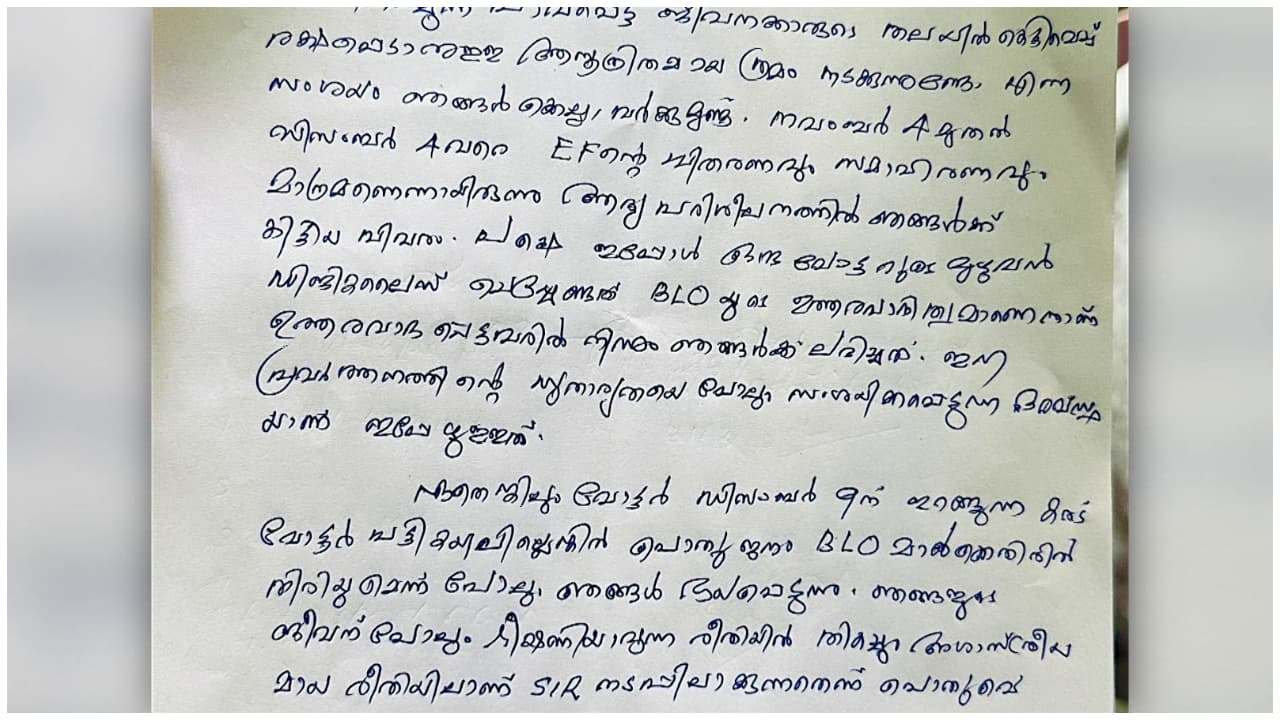 പാവപ്പെട്ട ജീവനക്കാരുടെ തലയിൽ കെട്ടിവെച്ച്
രക്ഷപ്പെടാനുള്ള ആസൂത്രിതമായ ശ്രമം നടക്കുന്നുണ്ടോ എന്ന
സംശയം ഞങ്ങൾക്കെല്ലാവർക്കുമുണ്ട്. നവംബർ 4 മുതൽ
ഡിസംബർ 4 വരെ EFന്റെ വിതരണവും സമാഹരണവും
മാത്രമാണെന്നായിരുന്നു ആദ്യ പരിശീലനത്തിൽ ഞങ്ങൾക്ക്
കിട്ടിയ വിവരം. പക്ഷെ ഇപ്പോൾ വോട്ടറുടെ മുഴുവൻ
ഡിജിറ്റലൈസ് ചെയ്യേണ്ടത് BLO യുടെ ഉത്തരവാദിത്വമാണെന്നാണ്
ഉത്തരവാദപ്പെട്ടവരിൽ നിന്നും ഞങ്ങൾക്ക് ലഭിച്ചത്. ഈ
പ്രവർത്തനത്തിന്റെ സുതാര്യതയെ പോലും സംശയിക്കപ്പെടുന്ന അവസ്ഥ
യാണ് ഇപ്പോഴുള്ളത്.
ഏതെങ്കിലും വോട്ടർ ഡിസംബർ 9ന് ഇറങ്ങുന്ന കരട്
വോട്ടർ പട്ടികയിലില്ലെങ്കിൽ പൊതുജനം BLO മാർക്കെതിരിൽ
തിരിയുമെന്ന് പോലും ഞങ്ങൾ ഭയപ്പെടുന്നു. ഞങ്ങളുടെ
ജീവന് പോലും ഭീഷണിയാവുന്ന രീതിയിൽ തികച്ചും അശാസ്ത്രീയ
മായ രീതിയിലാണ് SIR നടപ്പിലാക്കുന്നതെന്ന് പൊതുവെ